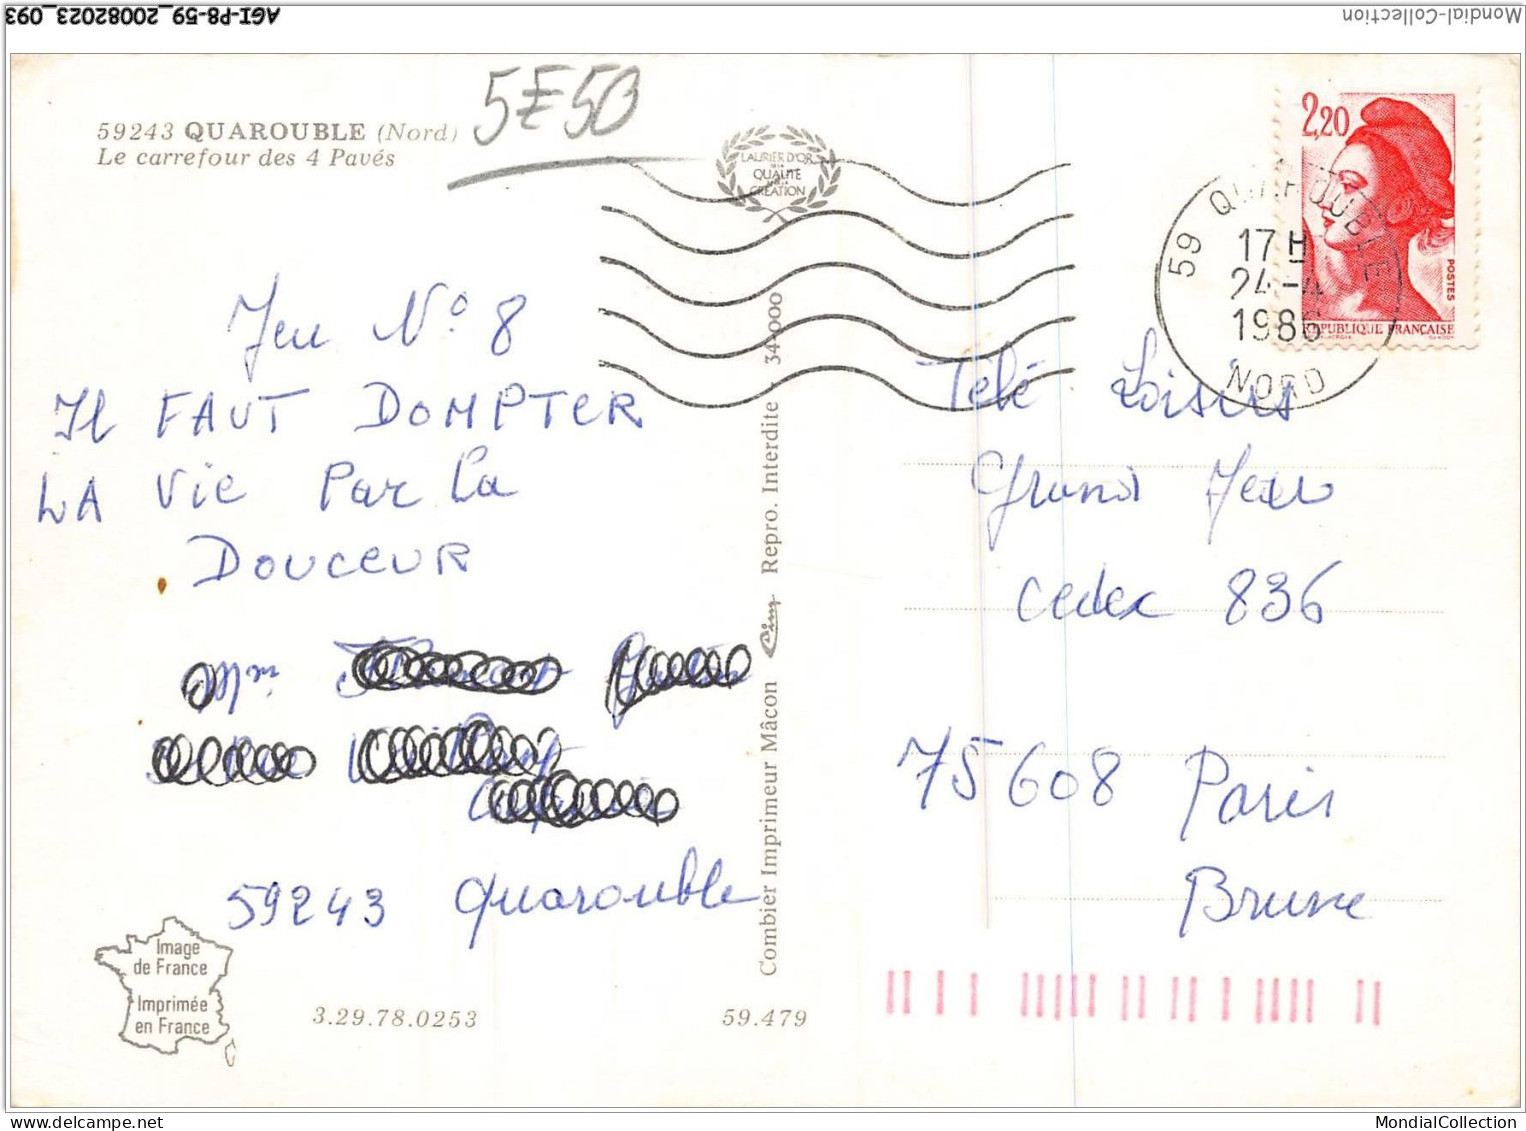 AGI-P8-59_20082023_093
Mondial-Collection
59243 QUAROUBLE (Nord)
Le carrefour des 4 Pavés
5E50
LAURIER D'OR
DE LA
QUALITE
CREATION
2,20
POSTES
REPUBLIQUE FRANÇAISE
59 QUAROUBLE
17 H
24-4
1986
NORD
Jeu N° 8
Il FAUT DOMPTER
LA Vie Par La
DOUCEUR
59243 Quarouble
Image
de France
Imprimée
en France
3.29.78.0253
59.479
Combier Imprimeur Mâcon Cim Repro. Interdite 34-000
Télé Loisirs
Grand Jeu
cedex 836
75608 Paris
Brune
MondialCollection